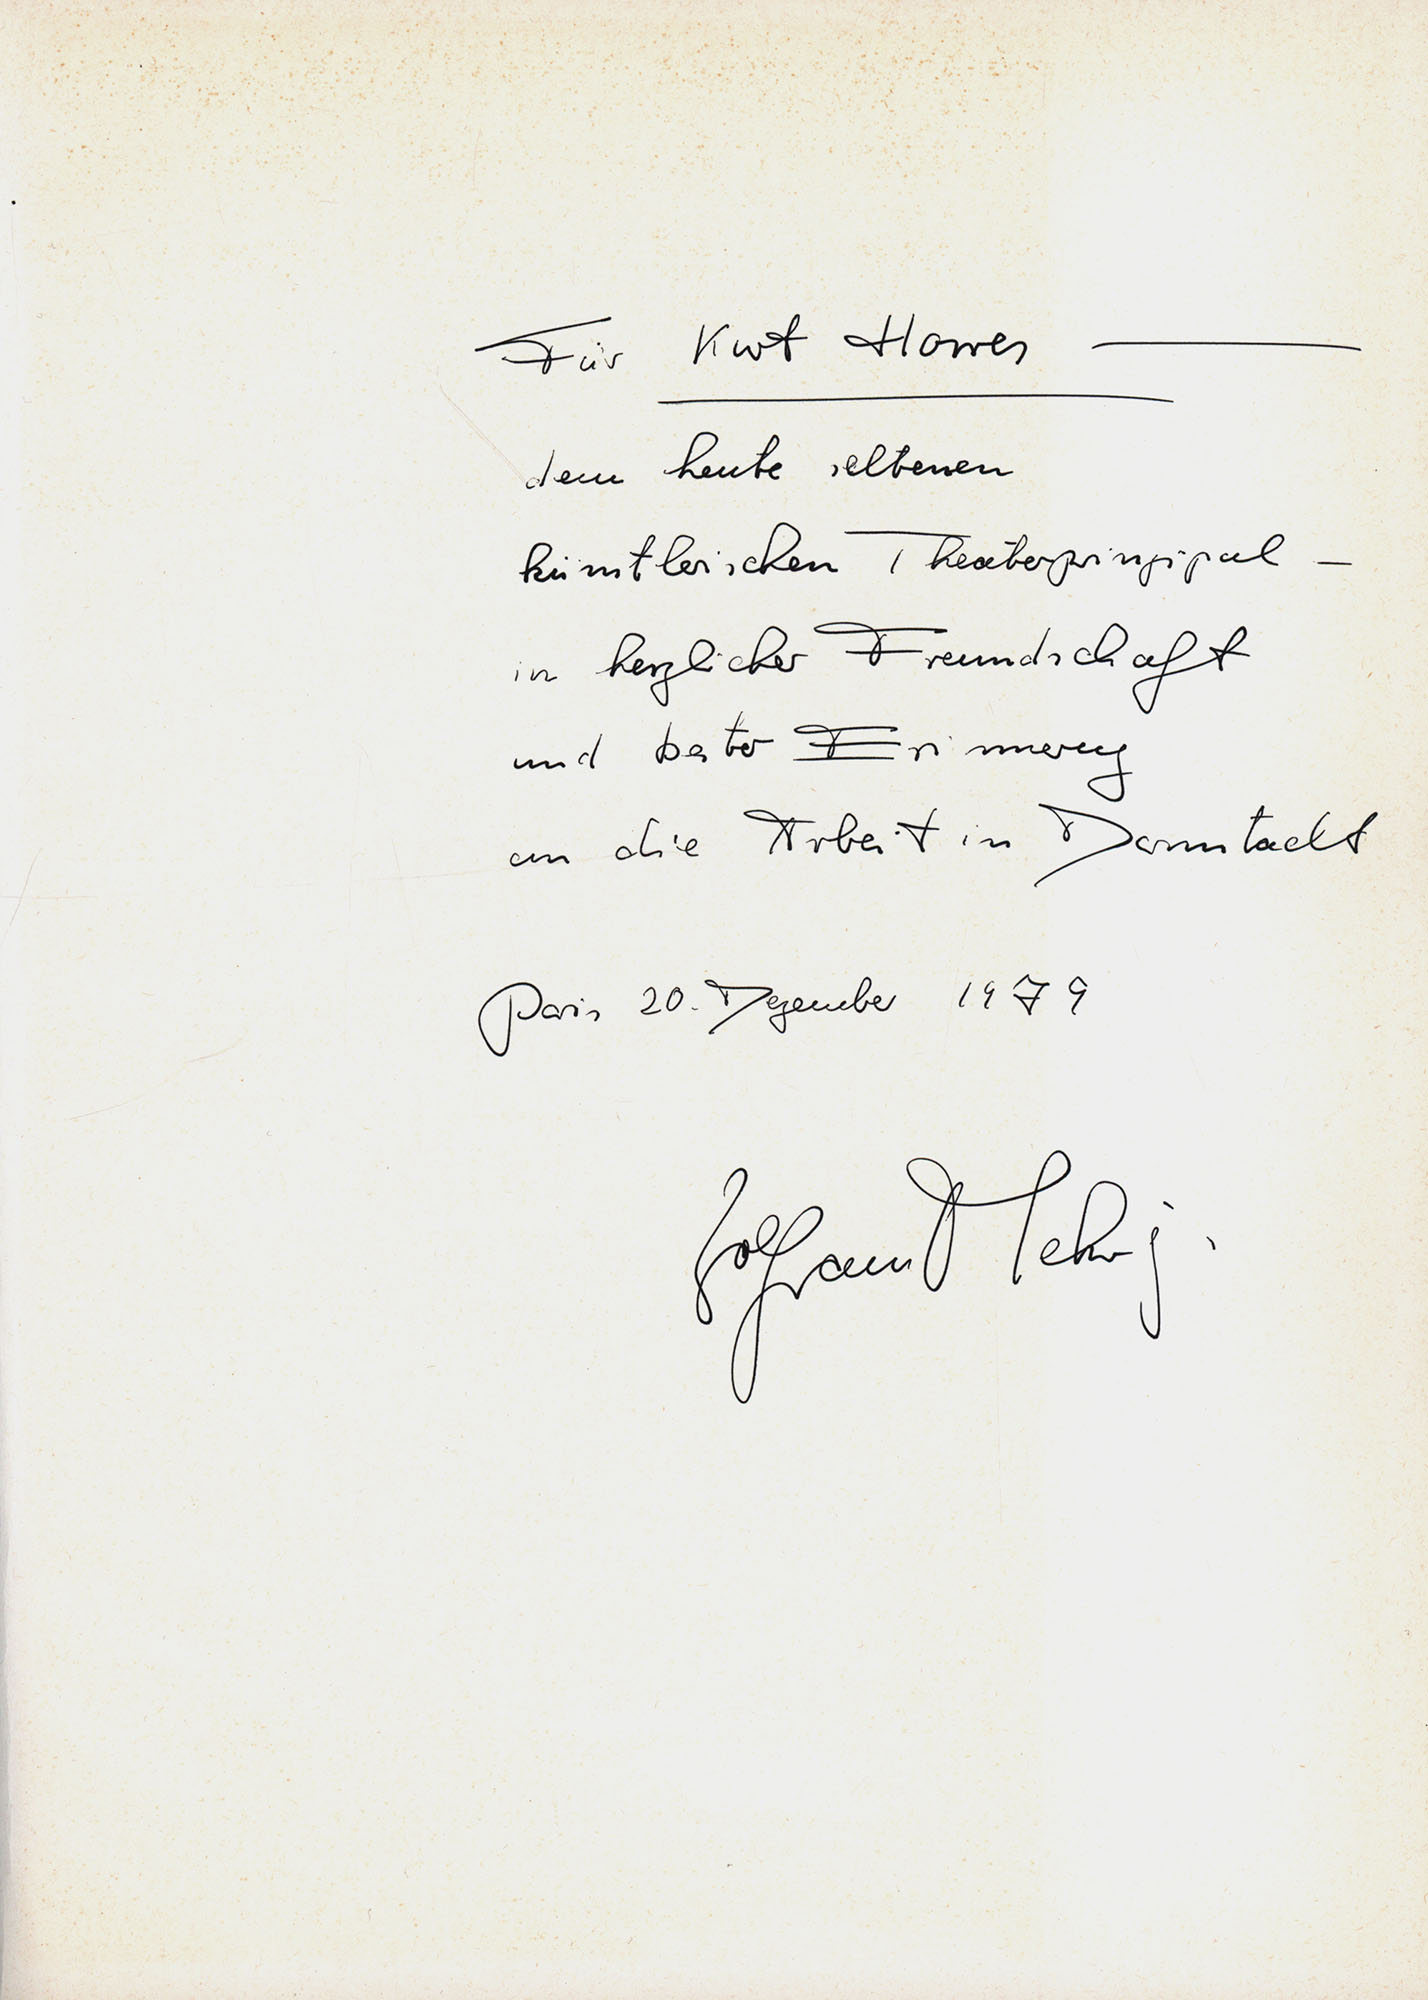 Für Kurt Horres
dem heute seltenen
künstlerischen Theaterprinzipal –
in herzlicher Freundschaft
und bester Erinnerung
an die Arbeit in Darmstadt
Paris 20. Dezember 1979
Wolfram Mehring.